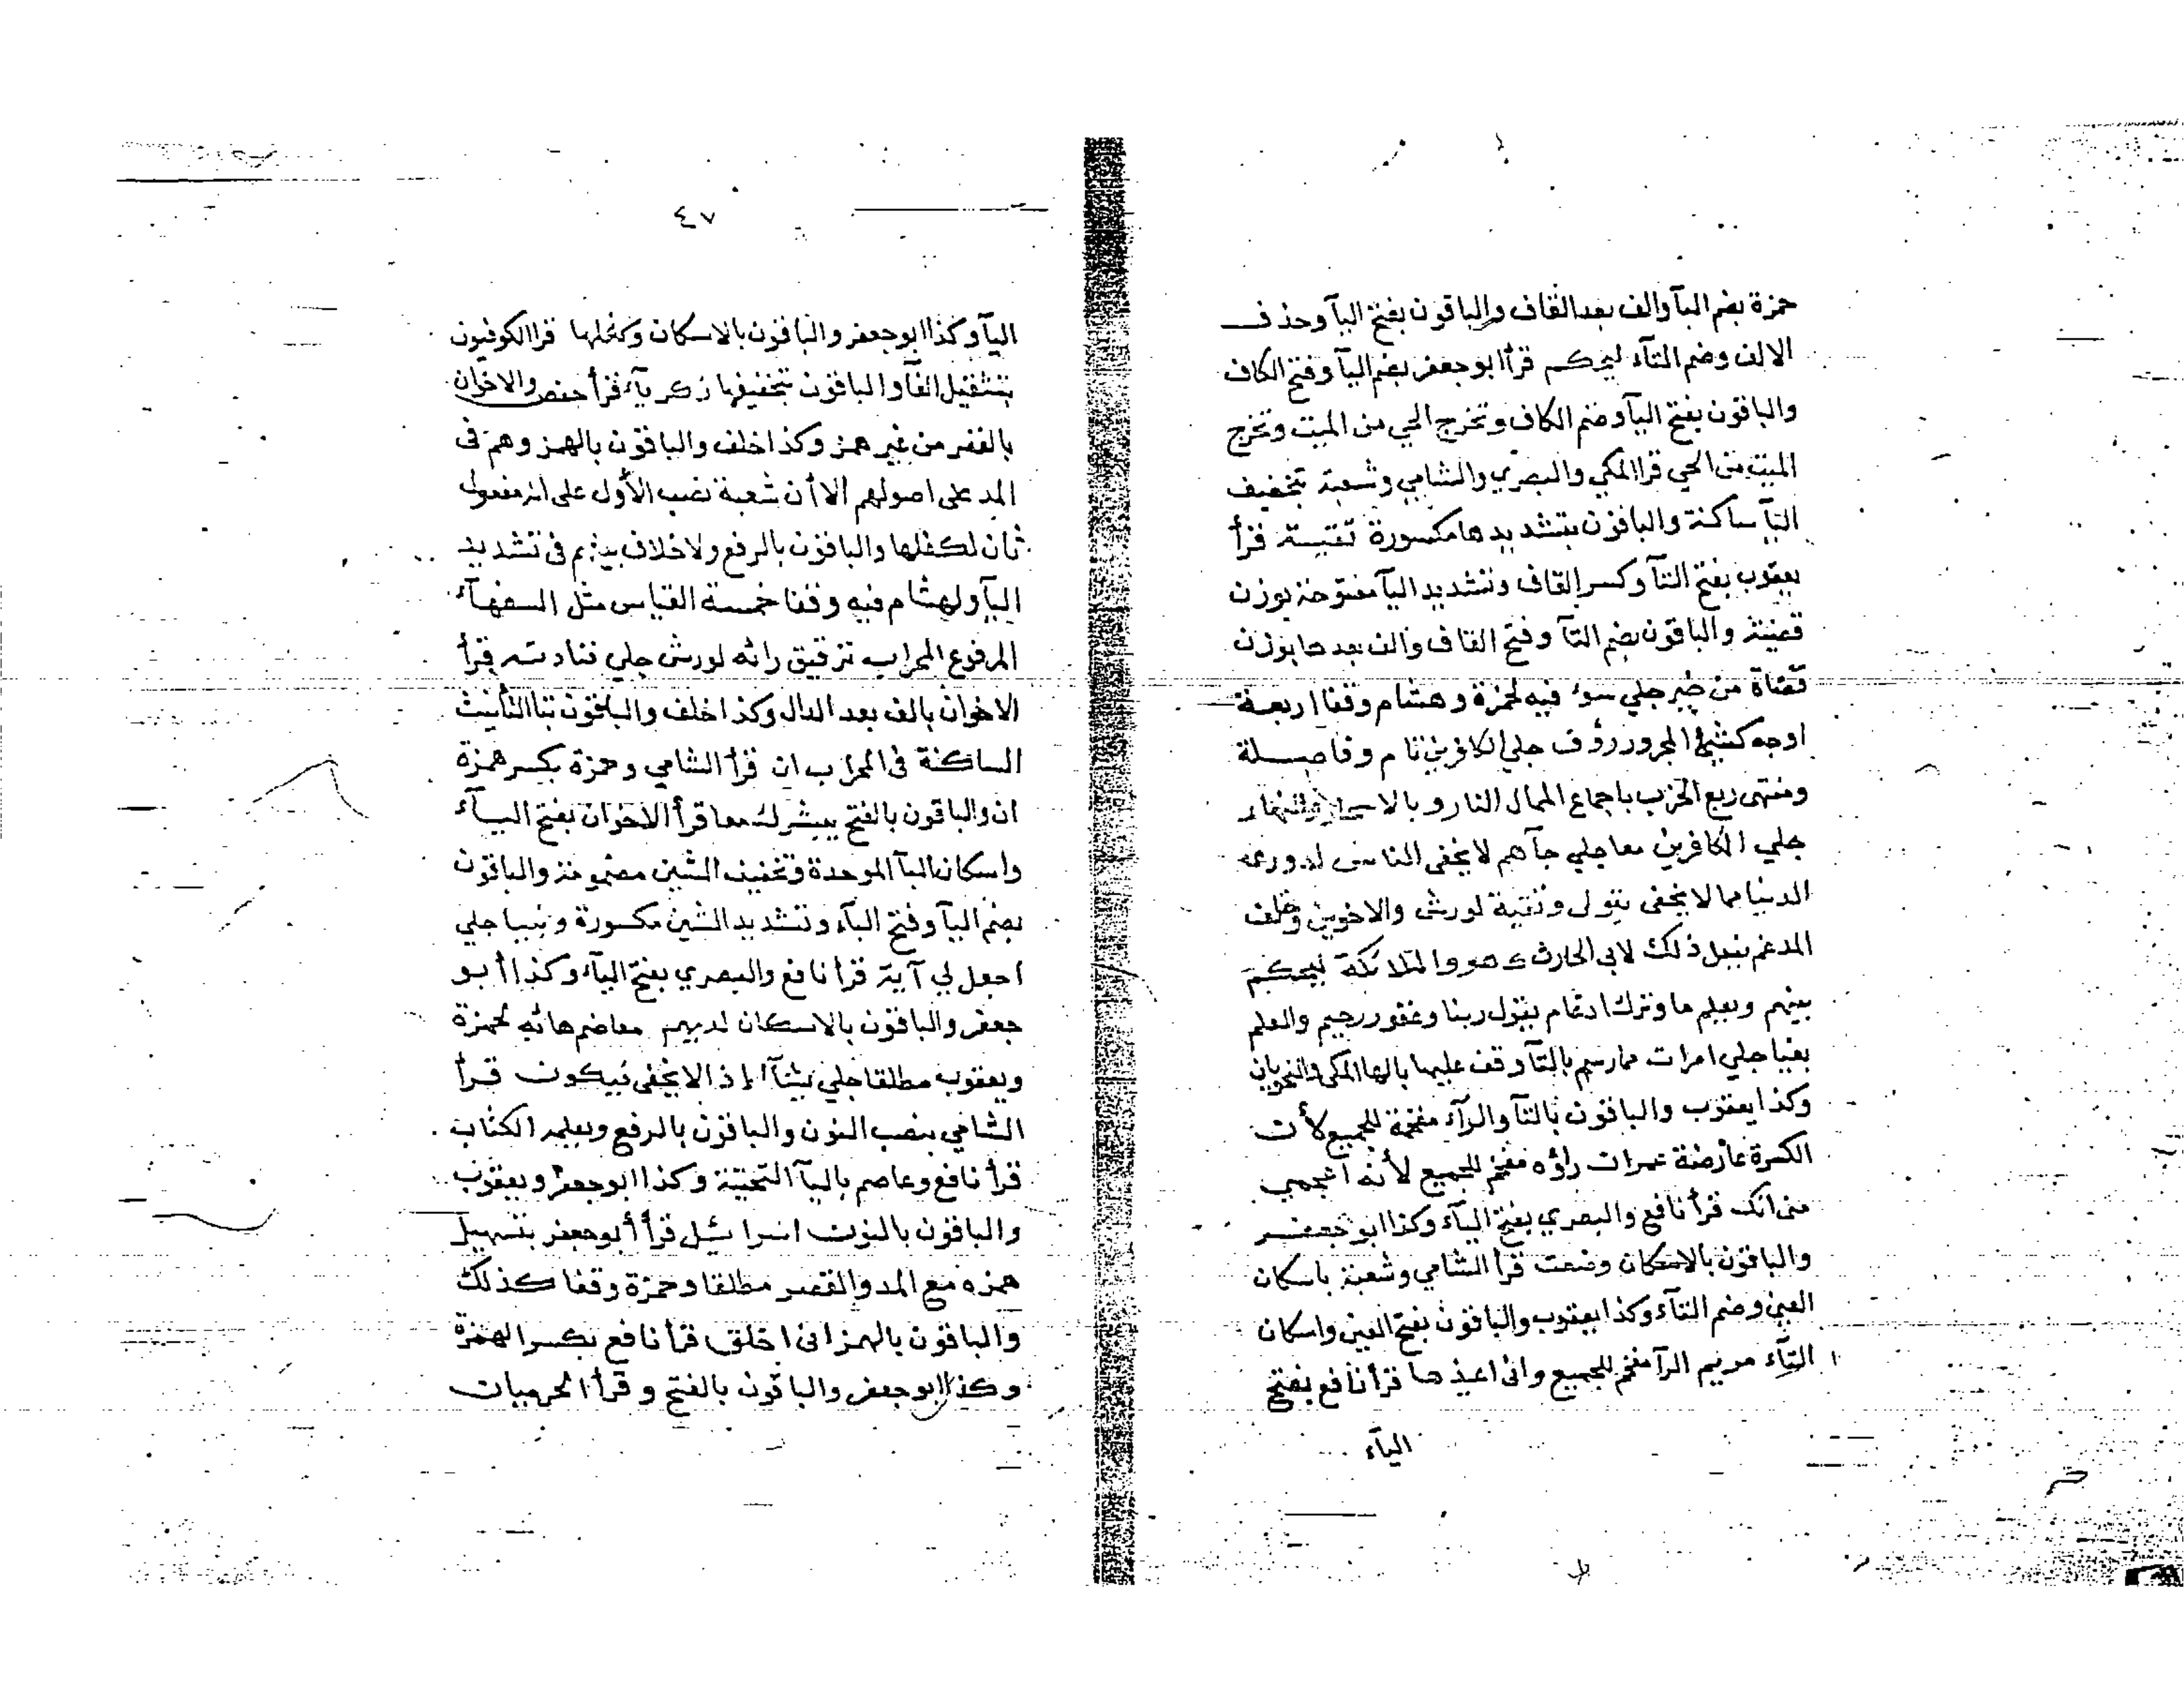 حمزة بضم اليآ والف بعد القاف والباقون بفتح اليآ وحذف
الالف وضم التآء ليحكم قرأ ابو جعفر بضم اليآ وفتح الكاف
والباقون بفتح اليآ وضم الكاف وتخرج الحي من الميت وتخرج
الميت من الحي قرا المكي والبصري والشامي وشعبة بتخفيف
اليآ ساكنة والباقون بتشديدها مكسورة تقية قرأ
يعقوب بفتح التآ وكسر القاف وتشديد اليآ مفتوحة بوزن
قضية والباقون بضم التآ وفتح القاف والف بعدها بوزن
تقاة من خير جلي سوء فيه لحمزة وهشام وقفا اربعة
اوجه كشيء المجرور رؤف جلي الكافرين تام وفاصلة
ومنتهى ربع الحزب باجماع الممال النار وبالاسحار والنهار
جلي الكافرين معا جلي جآهم لا يخفى الناس لدوري
الدنيا مما لا يخفى يتولى وتقية لورش والاخوين وخلف
المدغم يفعل ذلك لابي الحارث ك هو والملائكة ليحكم
بينهم ويعلم ما وترك ادغام يقول ربنا وغفور رحيم والعلم
بغيا جلي امرات مما رسم بالتآ وقف عليها بالها المكي والنحويان
وكذا يعقوب والباقون بالتآ والرآء مفخمة للجميع لأن
الكسرة عارضة عمران راؤه مفخم للجميع لأنه اعجمي
مني انك قرأ نافع والبصري بفتح اليآء وكذا ابو جعفر
والباقون بالاسكان وضعت قرأ الشامي وشعبة باسكان
العين وضم التآء وكذا يعقوب والباقون بفتح العين واسكان
التآء مريم الرآ مفخم للجميع واني اعيذها قرأ نافع بفتح
اليآء
٤٧
اليآ وكذا ابو جعفر والباقون بالاسكان وكفلها قرا الكوفيون
بتثقيل الفآ والباقون بتخفيفها زكريآء قرأ حفص والاخوان
بالقصر من غير همز وكذا خلف والباقون بالهمز وهم في
المد على اصولهم الا أن شعبة نصب الأول على انه مفعول
ثان لكفلها والباقون بالرفع ولا خلاف بينهم في تشديد
اليآ ولهشام فيه وقفا خمسة القياس مثل السفهآء
المرفوع المحراب ترقيق رائه لورش جلي فنادته قرأ
الاخوان بالف بعد الدال وكذا خلف والباقون بتا التأنيث
الساكنة في المحراب ان قرأ الشامي وحمزة بكسر همزة
ان والباقون بالفتح يبشرك معا قرأ الاخوان بفتح اليآء
واسكان البآ الموحدة وتخفيف الشين مضمومة والباقون
بضم اليآ وفتح البآء وتشديد الشين مكسورة ونبيا جلي
اجعل لي آية قرأ نافع والبصري بفتح اليآء وكذا أبو
جعفر والباقون بالاسكان لديهم معا ضم هائه لحمزة
ويعقوب مطلقا جلي يشآء اذا لا يخفى فيكون قرأ
الشامي بنصب النون والباقون بالرفع ويعلمه الكتاب
قرأ نافع وعاصم باليآ التحتية وكذا ابو جعفر ويعقوب
والباقون بالنون اسرائيل قرأ أبو جعفر بتسهيل
همزه مع المد والقصر مطلقا وحمزة وقفا كذلك
والباقون بالهمز اني اخلق قرأ نافع بكسر الهمزة
وكذا ابو جعفر والباقون بالفتح وقرأ الحرميان